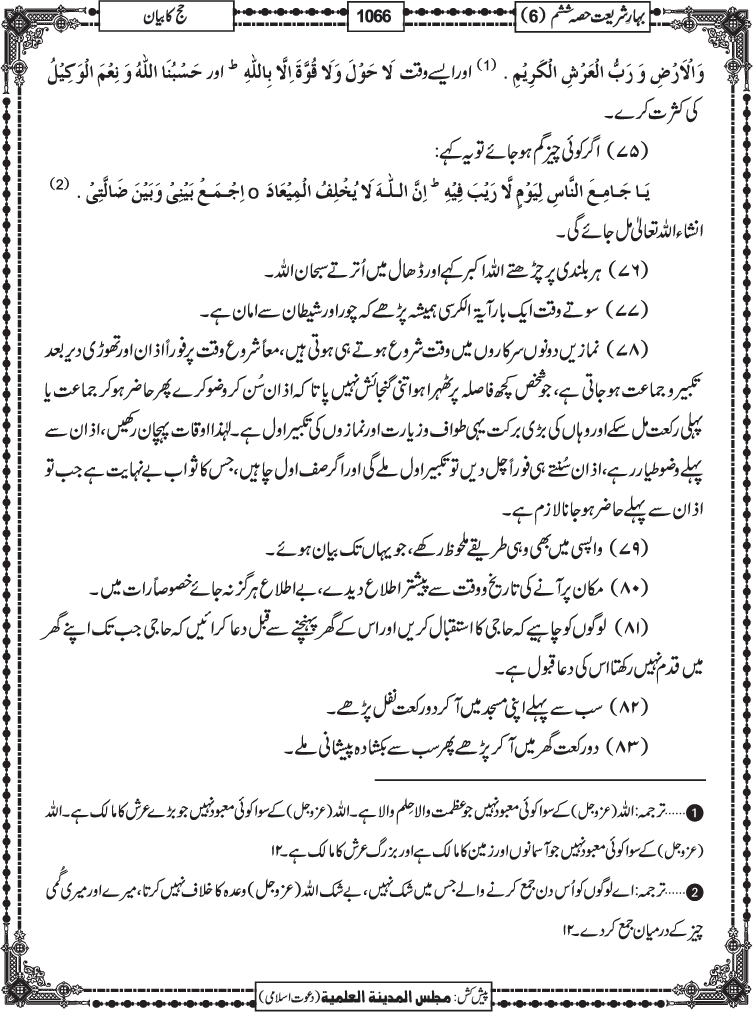 بہارِ شریعت حصہ ششم (6)
1066
حج کا بیان
وَالْاَرْضِ وَ رَبُّ الْعَرْشِ الْكَرِيْمِ . (1) اور ایسے وقت لَا حَوْلَ وَلَا قُوَّةَ اِلَّا بِاللّٰهِ ط اور حَسْبُنَا اللّٰهُ وَ نِعْمَ الْوَكِيْلُ
کی کثرت کرے۔
(۷۵) اگر کوئی چیز گم ہو جائے تو یہ کہے:
يَا جَامِعَ النَّاسِ لِيَوْمٍ لَّا رَيْبَ فِيْهِ ط اِنَّ اللّٰهَ لَا يُخْلِفُ الْمِيْعَادَ o اِجْمَعْ بَيْنِيْ وَبَيْنَ ضَالَّتِيْ . (2)
انشاء اللہ تعالیٰ مل جائے گی۔
(۷۶) ہر بلندی پر چڑھتے اللہ اکبر کہے اور ڈھال میں اُترتے سبحان اللہ۔
(۷۷) سوتے وقت ایک بار آیۃ الکرسی ہمیشہ پڑھے کہ چور اور شیطان سے امان ہے۔
(۷۸) نمازیں دونوں سرکاروں میں وقت شروع ہوتے ہی ہوتی ہیں، معاً شروع وقت پر فوراً اذان اور تھوڑی دیر بعد
تکبیر و جماعت ہو جاتی ہے، جو شخص کچھ فاصلہ پر ٹھہرا ہو اتنی گنجائش نہیں پاتا کہ اذان سُن کر وضو کرے پھر حاضر ہو کر جماعت یا
پہلی رکعت مل سکے اور وہاں کی بڑی برکت یہی طواف و زیارت اور نمازوں کی تکبیر اول ہے۔ لہٰذا اوقات پہچان رکھیں، اذان سے
پہلے وضو طیار رہے، اذان سُنتے ہی فوراً چل دیں تو تکبیر اول ملے گی اور اگر صف اول چاہیں، جس کا ثواب بے نہایت ہے جب تو
اذان سے پہلے حاضر ہو جانا لازم ہے۔
(۷۹) واپسی میں بھی وہی طریقے ملحوظ رکھے، جو یہاں تک بیان ہوئے۔
(۸۰) مکان پر آنے کی تاریخ و وقت سے پیشتر اطلاع دیدے، بے اطلاع ہرگز نہ جائے خصوصاً رات میں۔
(۸۱) لوگوں کو چاہیے کہ حاجی کا استقبال کریں اور اس کے گھر پہنچنے سے قبل دعا کرائیں کہ حاجی جب تک اپنے گھر
میں قدم نہیں رکھتا اس کی دعا قبول ہے۔
(۸۲) سب سے پہلے اپنی مسجد میں آکر دو رکعت نفل پڑھے۔
(۸۳) دو رکعت گھر میں آکر پڑھے پھر سب سے بکشادہ پیشانی ملے۔
1 ......ترجمہ: اللہ (عزوجل) کے سوا کوئی معبود نہیں جو عظمت والا حِلم والا ہے۔ اللہ (عزوجل) کے سوا کوئی معبود نہیں جو بڑے عرش کا مالک ہے۔ اللہ
(عزوجل) کے سوا کوئی معبود نہیں جو آسمانوں اور زمین کا مالک ہے اور بزرگ عرش کا مالک ہے۔ ۱۲
2 ......ترجمہ: اے لوگوں کو اُس دن جمع کرنے والے جس میں شک نہیں، بے شک اللہ (عزوجل) وعدہ کا خلاف نہیں کرتا، میرے اور میری گمی
چیز کے درمیان جمع کردے۔ ۱۲
پیش کش: مجلس المدينة العلمية (دعوت اسلامی)